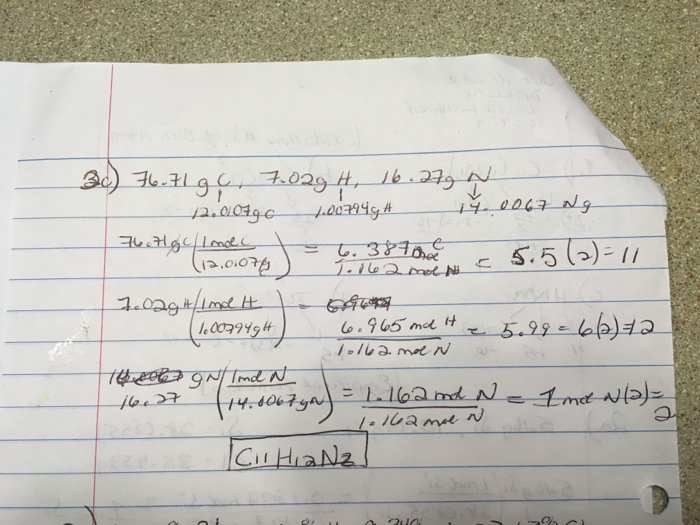 3c) 76.71 g C, 7.02g H, 16.27g N
12.0107g C 1.00794g H 14.0067 N g
76.71 g C (1 mol C / 12.0107g) = 6.387 mol C / 1.162 mol N = 5.5 (2) = 11
7.02g H (1 mol H / 1.00794 g H) = 6.965 mol H / 1.162 mol N = 5.99 = 6(2) = 12
16.27 g N (1 mol N / 14.0067 g N) = 1.162 mol N / 1.162 mol N = 1 mol N (2) = 2
C11 H12 N2